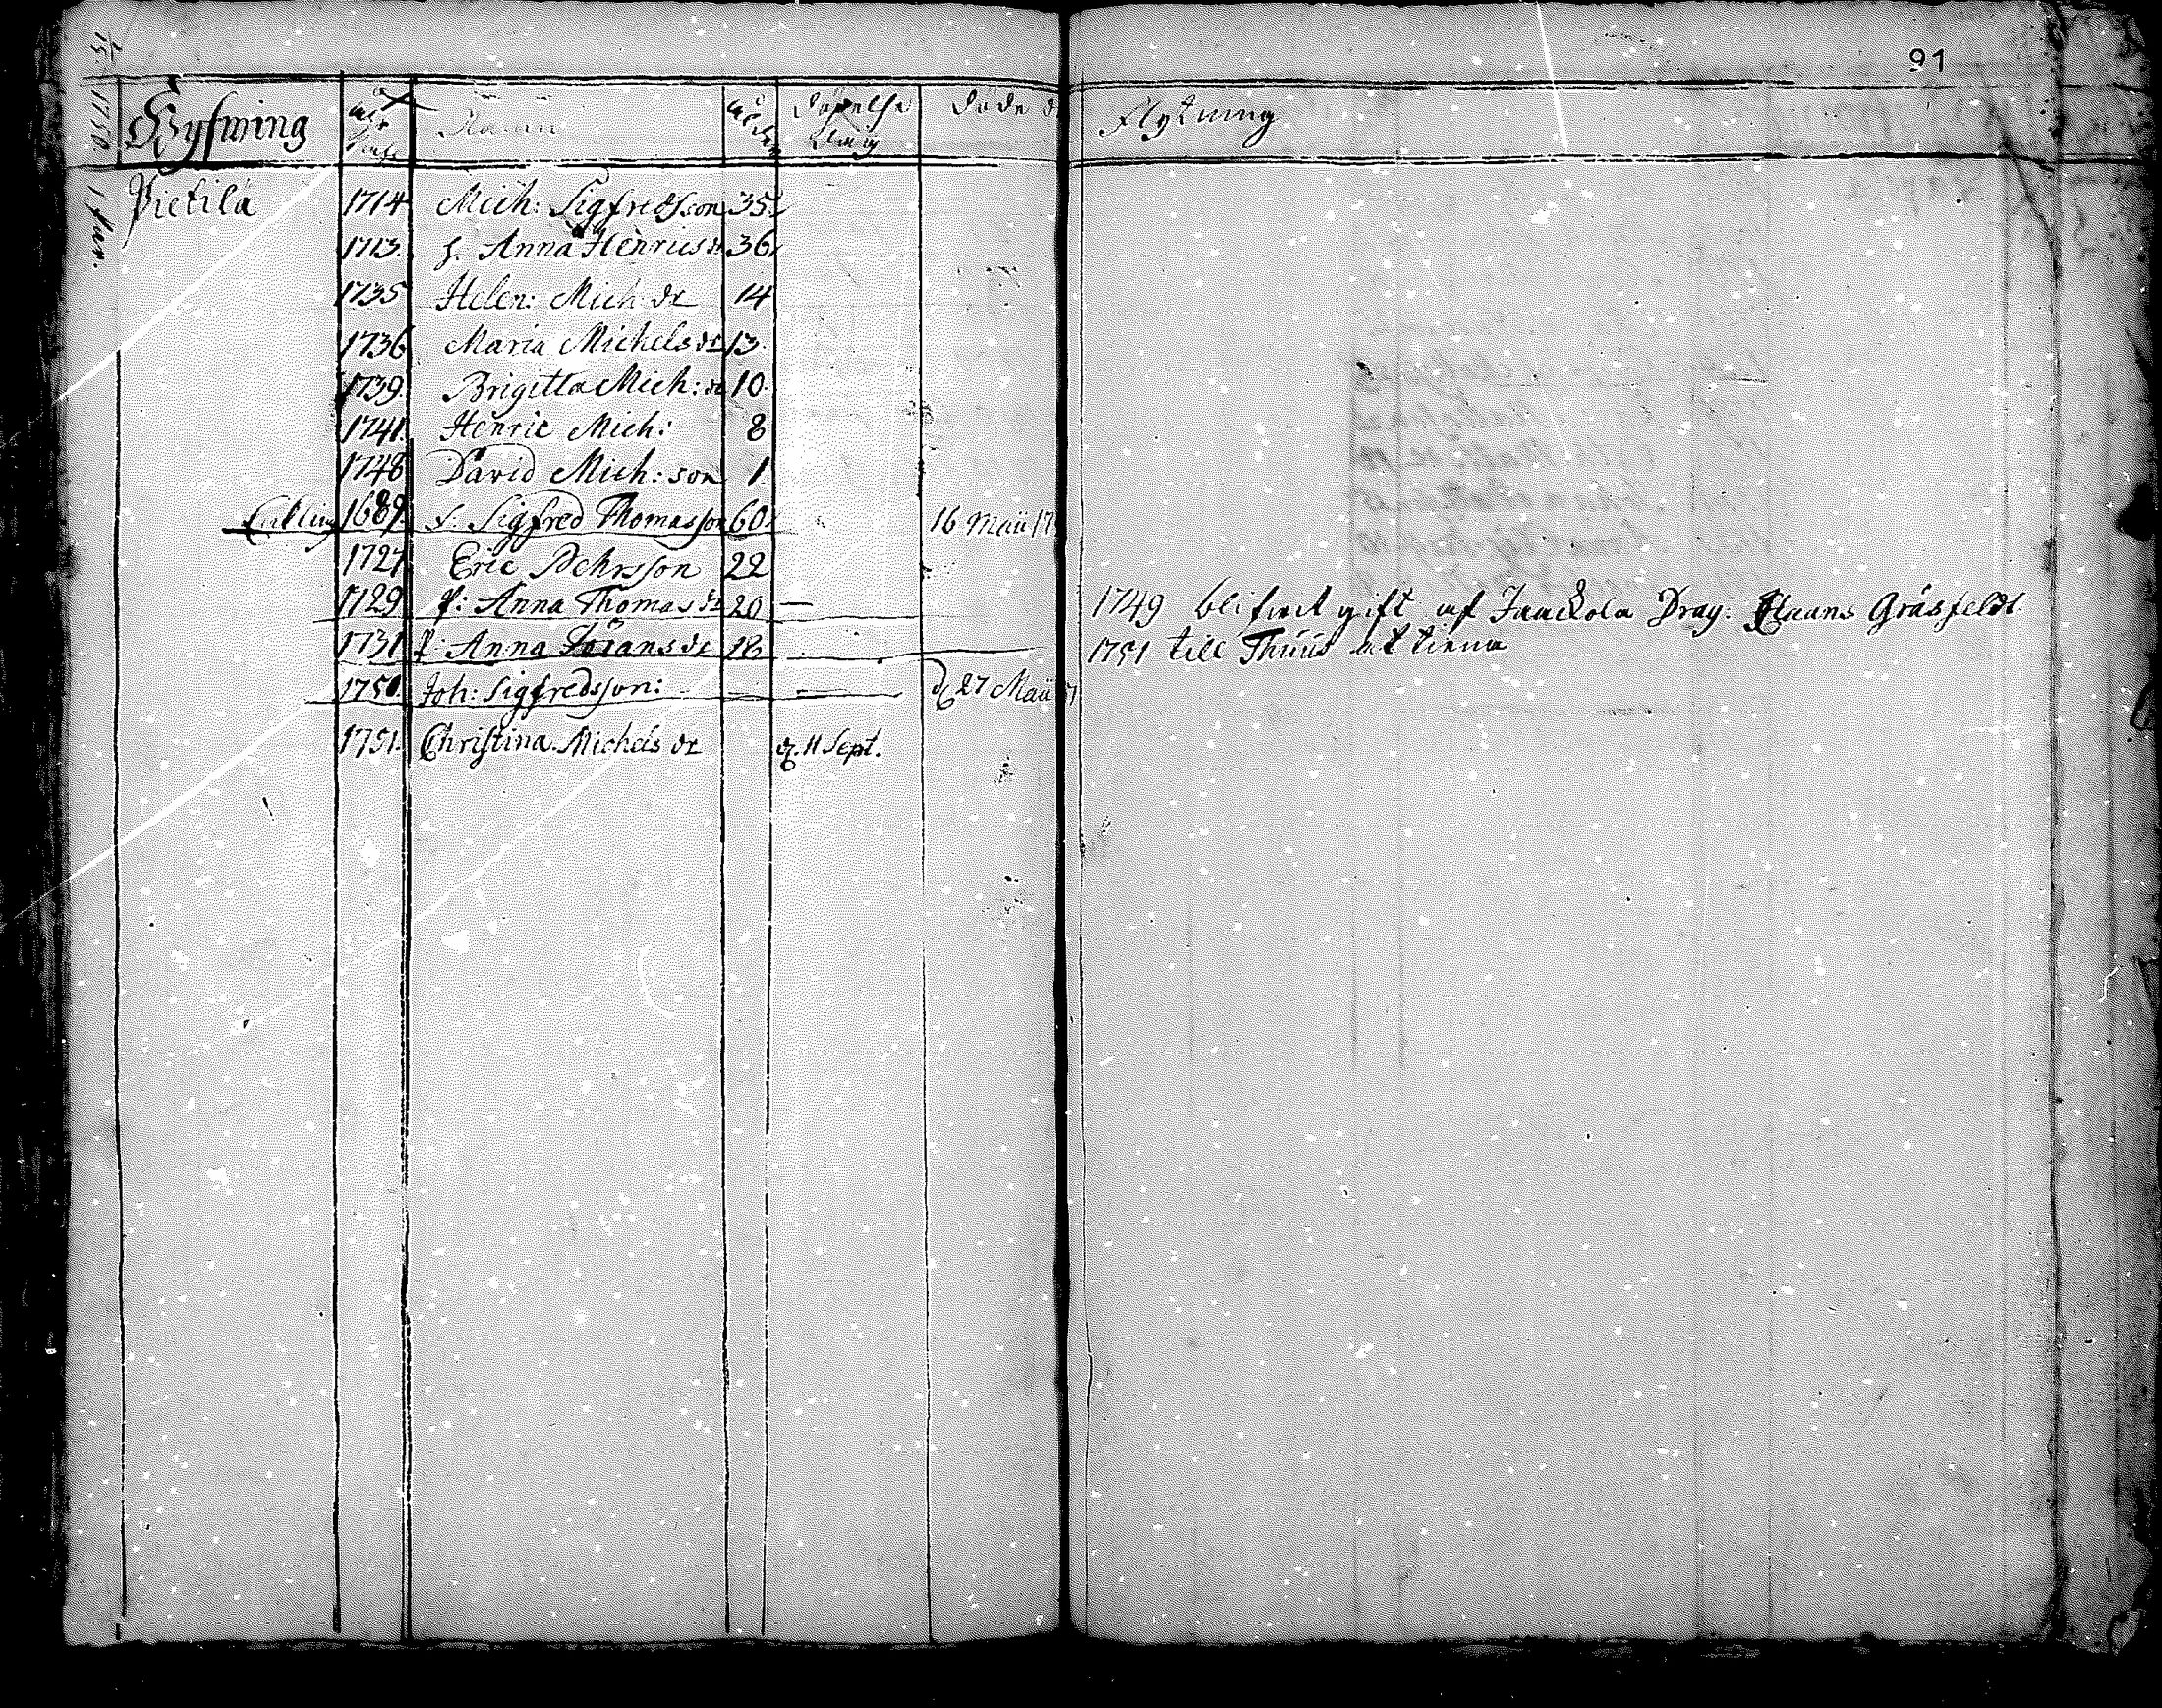 91
Namn Döde d Flytning
1 Aar. 1750.
Pietilä 1714 Mich: Sigfredsson 35
1713. h. Anna Henrics dr 36
1735 Helen: Mich dr 14
1736 Maria Michels dr 13.
1739. Brigitta Mich: dr 10.
1741. Henric Mich: 8
1748 David Mich: son 1.
1689. f. Sigfred Thomasson 60. 16 Maii 17
1727 Eric Pehrsson 22
1729 P: Anna Thomas dr 20 — 1749 blifwit gift af Jaackola Drag: Claans Gräsfeldt.
1731 P: Anna Jörans dr 18 1751 till Thuus at tiena
1750. Joh: Sigfredsson: d. 27 Maii 51
1751. Christina Michels dr d. 11 Sept.